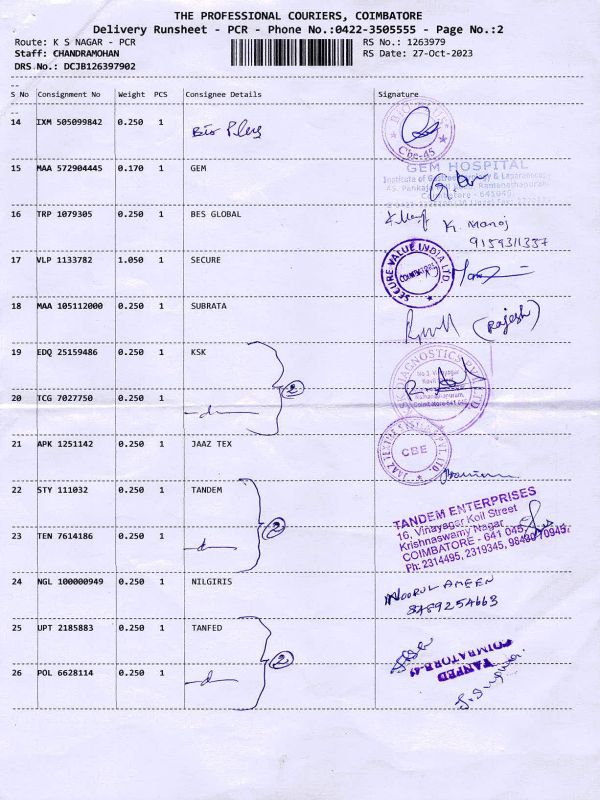 THE PROFESSIONAL COURIERS, COIMBATORE
Delivery Runsheet - PCR - Phone No.:0422-3505555 - Page No.:2
Route: K S NAGAR - PCR
RS No.: 1263979
Staff: CHANDRAMOHAN
RS Date: 27-Oct-2023
DRS No.: DCJB126397902
S No Consignment No Weight PCS Consignee Details Signature
14 IXM 505099842 0.250 1 Bio Plus
Cbe-45
15 MAA 572904445 0.170 1 GEM
GEM HOSPITAL
Institute of
Ramanathapuram,
Coimbatore - 641045.
16 TRP 1079305 0.250 1 BES GLOBAL
K. Manoj
9159311337
17 VLP 1133782 1.050 1 SECURE
SECURE VALUE INDIA LTD.
COIMBATORE
18 MAA 105112000 0.250 1 SUBRATA
(Rajesh)
19 EDQ 25159486 0.250 1 KSK
2
DIAGNOSTICS PVT LTD
Coimbatore-641 045
20 TCG 7027750 0.250 1 -do-
21 APK 1251142 0.250 1 JAAZ TEX
CBE
22 STY 111032 0.250 1 TANDEM
2
TANDEM ENTERPRISES
16, Vinayagar Koil Street
Krishnaswamy Nagar
COIMBATORE - 641 045
Ph: 2314495, 2319345, 98430 70945
23 TEN 7614186 0.250 1 -do-
24 NGL 100000949 0.250 1 NILGIRIS
NOORUL AMEEN
25 UPT 2185883 0.250 1 TANFED
2
TANFED
COIMBATORE-45
26 POL 6628114 0.250 1 -do-